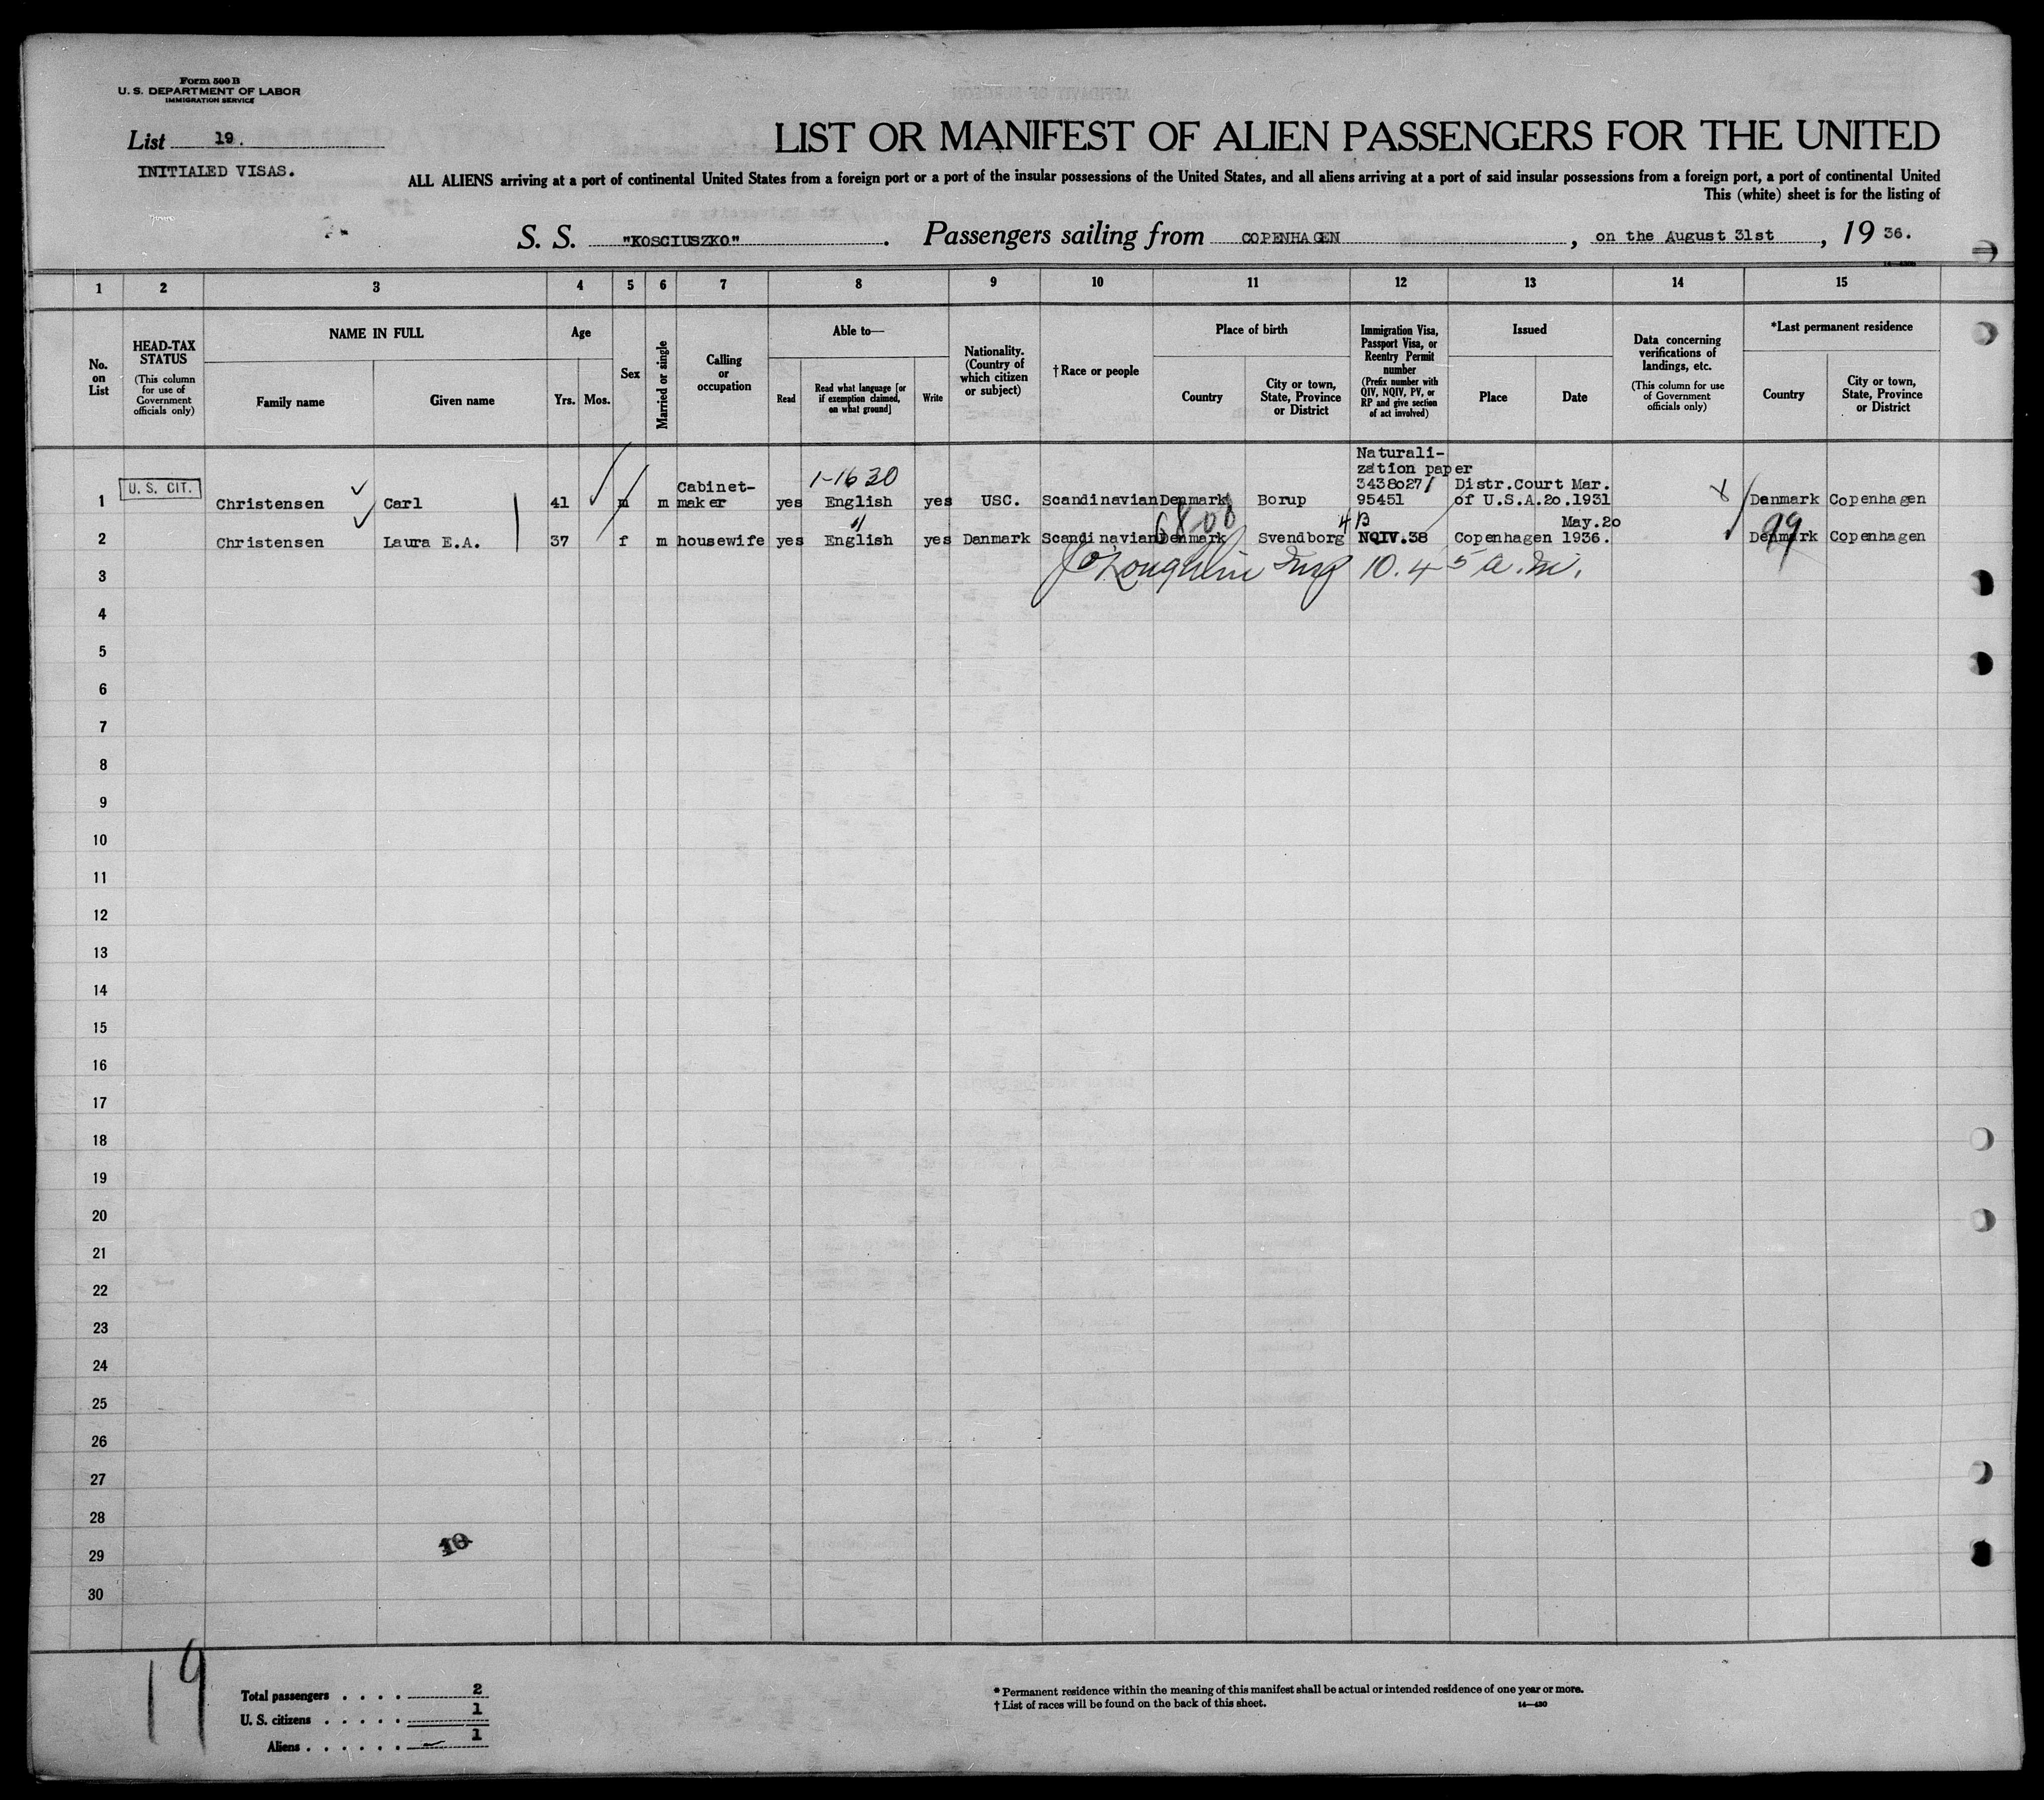 Form 500 B
U. S. DEPARTMENT OF LABOR
IMMIGRATION SERVICE
List 19.
INITIALED VISAS.
LIST OR MANIFEST OF ALIEN PASSENGERS FOR THE UNITED
ALL ALIENS arriving at a port of continental United States from a foreign port or a port of the insular possessions of the United States, and all aliens arriving at a port of said insular possessions from a foreign port, a port of continental United
This (white) sheet is for the listing of
S. S. "KOSCIUSZKO". Passengers sailing from COPENHAGEN, on the August 31st, 19 36.
1 2 3 4 5 6 7 8 9 10 11 12 13 14 15
No. on List
HEAD-TAX STATUS
(This column for use of Government officials only)
NAME IN FULL
Family name
Given name
Age
Yrs. Mos.
Sex
Married or single
Calling or occupation
Able to—
Read
Read what language [or if exemption claimed, on what ground]
Write
Nationality. (Country of which citizen or subject)
† Race or people
Place of birth
Country
City or town, State, Province or District
Immigration Visa, Passport Visa, or Reentry Permit number
(Prefix number with QIV, NQIV, PV, or RP and give section of act involved)
Issued
Place
Date
Data concerning verifications of landings, etc.
(This column for use of Government officials only)
*Last permanent residence
Country
City or town, State, Province or District
Naturali-
zation paper
1-1630
Cabinet- 3438027/ Distr.Court Mar.
1 U. S. CIT. Christensen Carl 41 m m maker yes English yes USC. Scandinavian Denmark Borup 95451 of U.S.A. 20.1931 Denmark Copenhagen
4 B May.20
2 Christensen Laura E.A. 37 f m housewife yes English yes Danmark Scandinavian Denmark Svendborg NQIV.38 Copenhagen 1936. Denmark Copenhagen
99
3 O'Loughlin Insp 10.45 a.m.
4
5
6
7
8
9
10
11
12
13
14
15
16
17
18
19
20
21
22
23
24
25
26
27
28
29
30
10
19
Total passengers . . . . 2
U. S. citizens . . . . . 1
Aliens . . . . . . 1
* Permanent residence within the meaning of this manifest shall be actual or intended residence of one year or more.
† List of races will be found on the back of this sheet.
14—430